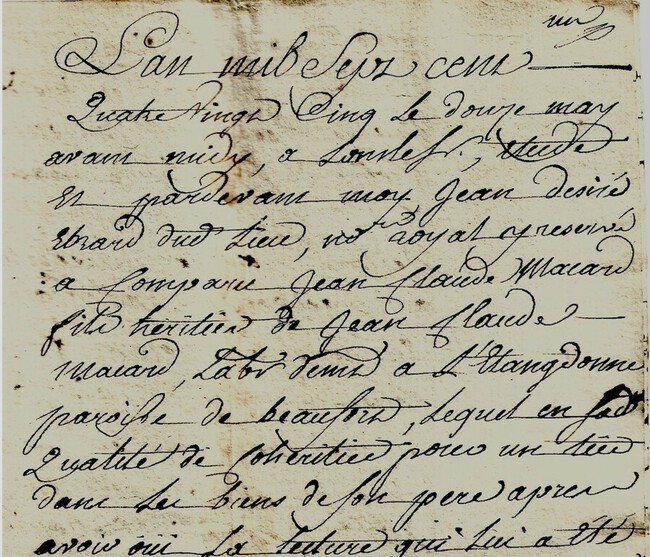 un
L'an mil Sept cent
Quatre vingt Cinq le douze may
avant midy, a , etude
Et pardevant moy Jean desiré
Ebrard dud lieu, nore royal y reservé
a Comparu Jean Claude Macard
fils heritier de Jean Claude
Macard, Labr demt a L'Etangdonne
paroisse de beaufort, Lequel en sad
Qualité de Coheritier pour un tier
dans les biens de son pere apres
avoir oüi La lecture qui lui a été